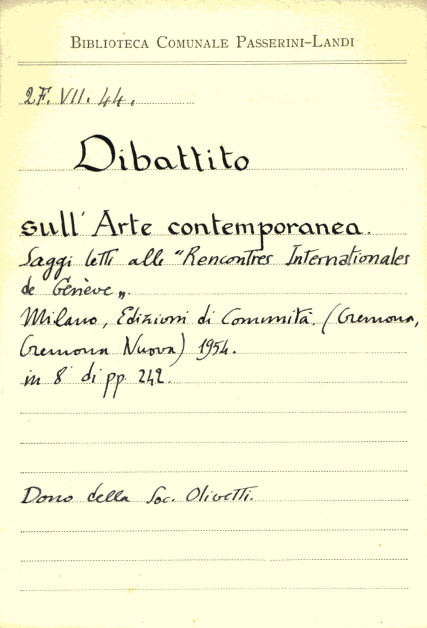 BIBLIOTECA COMUNALE PASSERINI-LANDI
2F. VII. 44.
Dibattito
sull' Arte contemporanea.
Saggi letti alle "Rencontres Internationales
de Genève„.
Milano, Edizioni di Comunità. (Cremona,
Cremona Nuova) 1954.
in 8° di pp 242.
Dono della Soc. Olivetti.